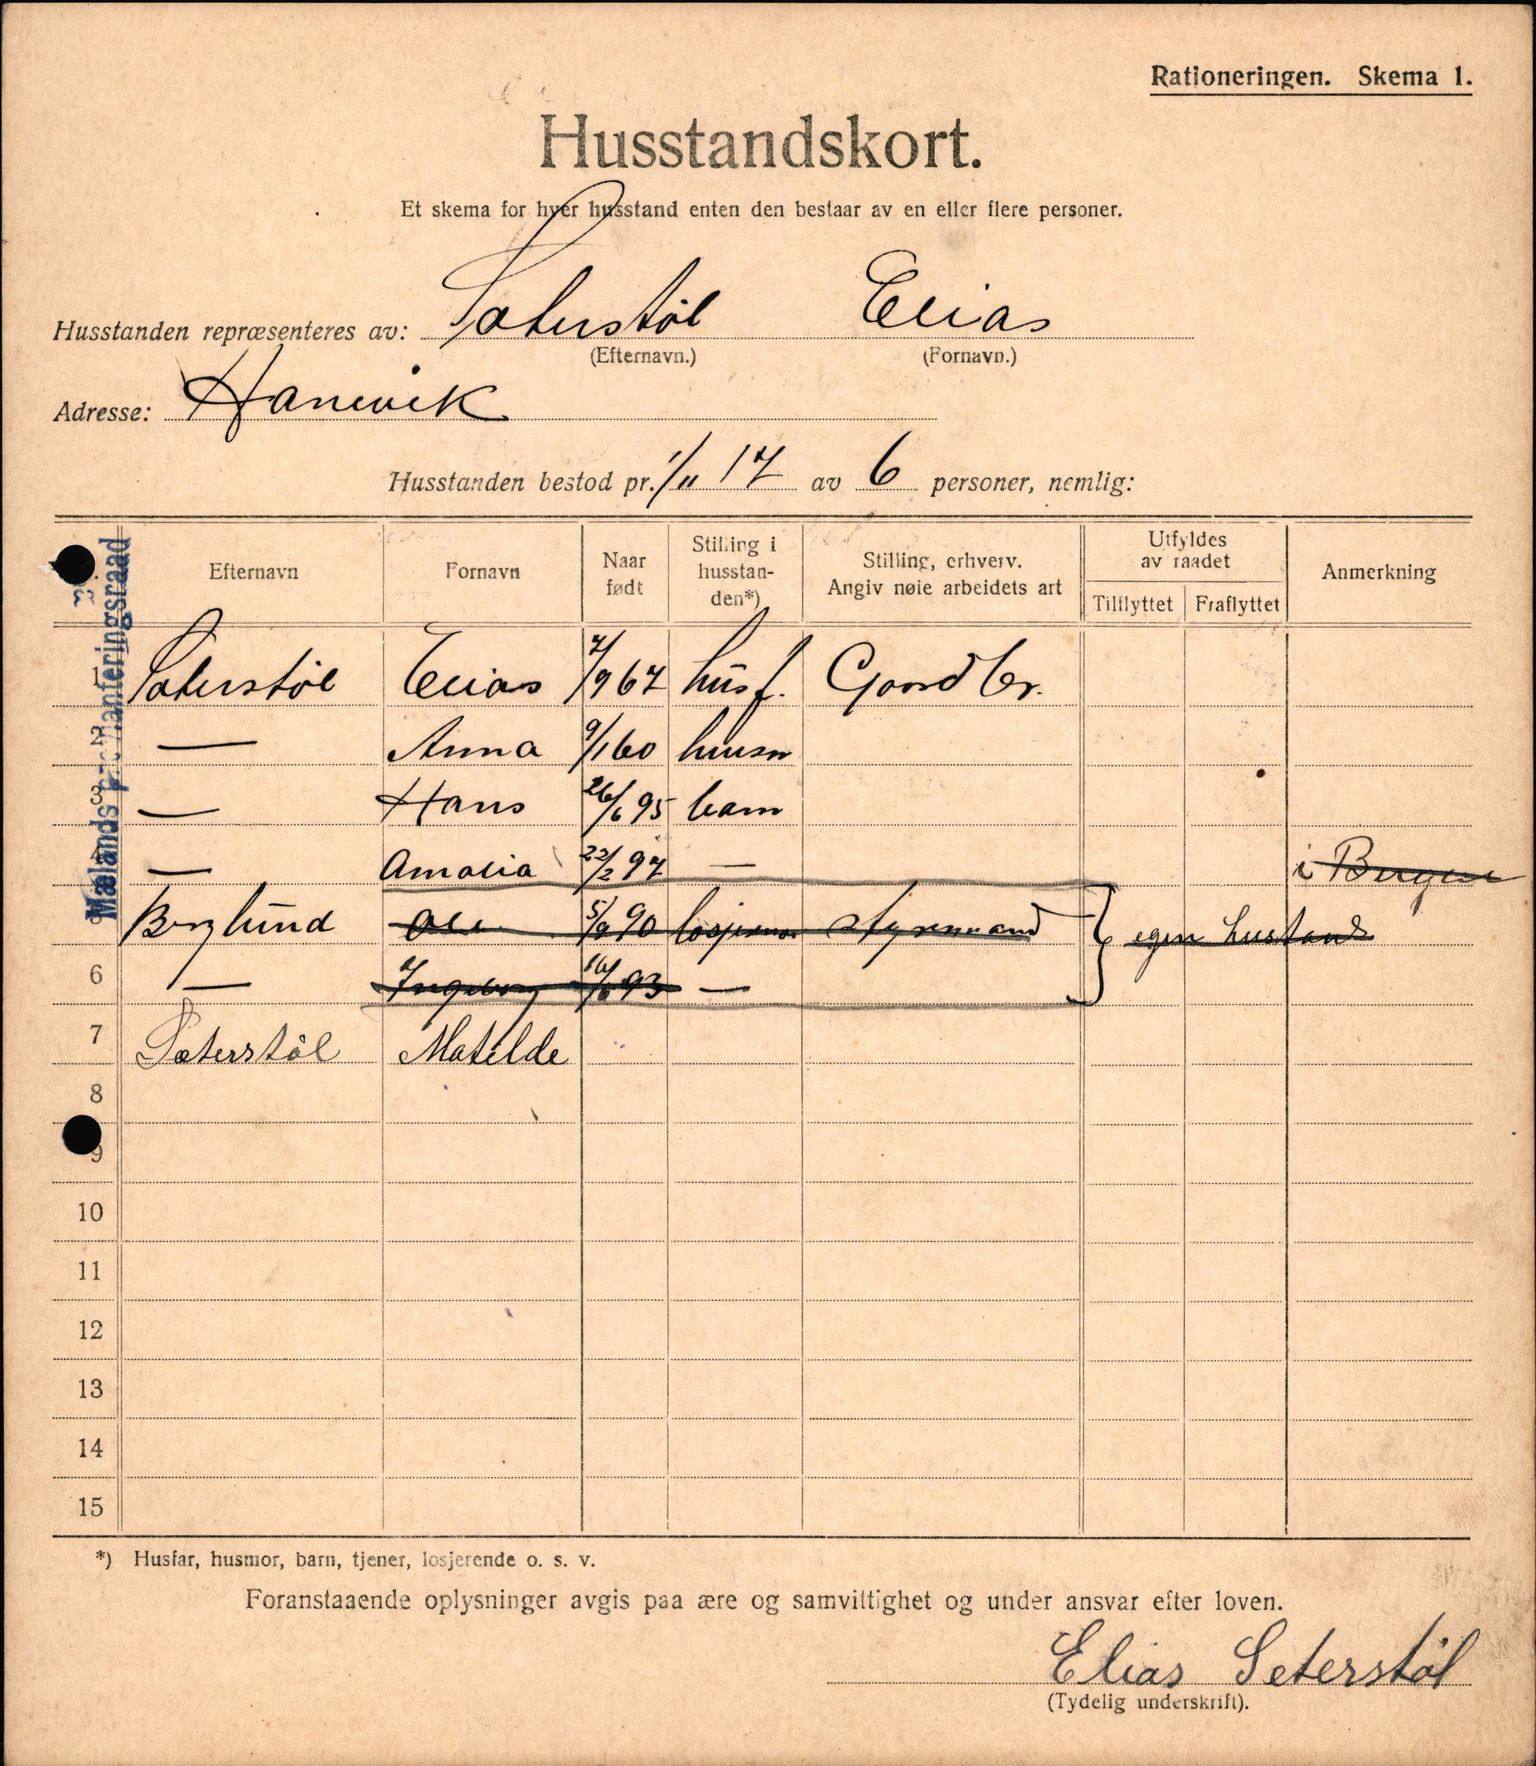 Rationeringen. Skema 1.
Husstandskort.
Et skema for hver husstand enten den bestaar av en eller flere personer.
Husstanden repræsenteres av: Sæterstøl Elias
(Efternavn.) (Fornavn.)
Adresse: Hanevik
Husstanden bestod pr. 1/11 17 av 6 personer, nemlig:
Mælands provianteringsraad
Efternavn Fornavn Naar født Stilling i husstanden*) Stilling, erhverv. Angiv nøie arbeidets art Utfyldes av raadet Tilflyttet Fraflyttet Anmerkning
1 Sæterstøl Elias 7/9 67 husf. Gaardbr.
2 — Anna 9/1 60 husm
3 — Hans 26/6 95 barn
— Amalia 22/2 97 — i Bergen
Berglund Ole 5/9 90 losjerende styrmand } egen husstand
6 — Ingeborg 16/6 93 —
7 Sæterstøl Matilde
8
9
10
11
12
13
14
15
*) Husfar, husmor, barn, tjener, losjerende o. s. v.
Foranstaaende oplysninger avgis paa ære og samvittighet og under ansvar efter loven.
Elias Seterstøl
(Tydelig underskrift).